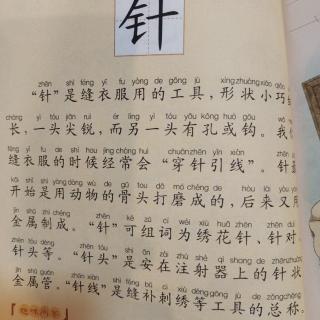 针
zhēn shì féng yī fu yòng de gōng jù xíng zhuàng xiǎo qiǎo
“针”是缝衣服用的工具，形状小巧
cháng yì tóu jiān ruì ér lìng yì tóu yǒu kǒng huò gōu
长，一头尖锐，而另一头有孔或钩。我
féng yī fu de shí hou jīng cháng huì chuān zhēn yǐn xiàn zhēn
缝衣服的时候经常会“穿针引线”。针
kāi shǐ shì yòng dòng wù de gǔ tou dǎ mó chéng de hòu lái yòu yòng
开始是用动物的骨头打磨成的，后来又用
jīn shǔ zhì chéng zhēn kě zǔ cí wéi xiù huā zhēn zhēn duì
金属制成。“针”可组词为绣花针、针对、
zhēn tóu děng zhēn tóu shì ān zài zhù shè qì shang de zhēn zhuàng
针头等。“针头”是安在注射器上的针状
jīn shǔ guǎn zhēn xiàn shì féng bǔ cì xiù děng gōng jù de zǒng chēng
金属管。“针线”是缝补刺绣等工具的总称。